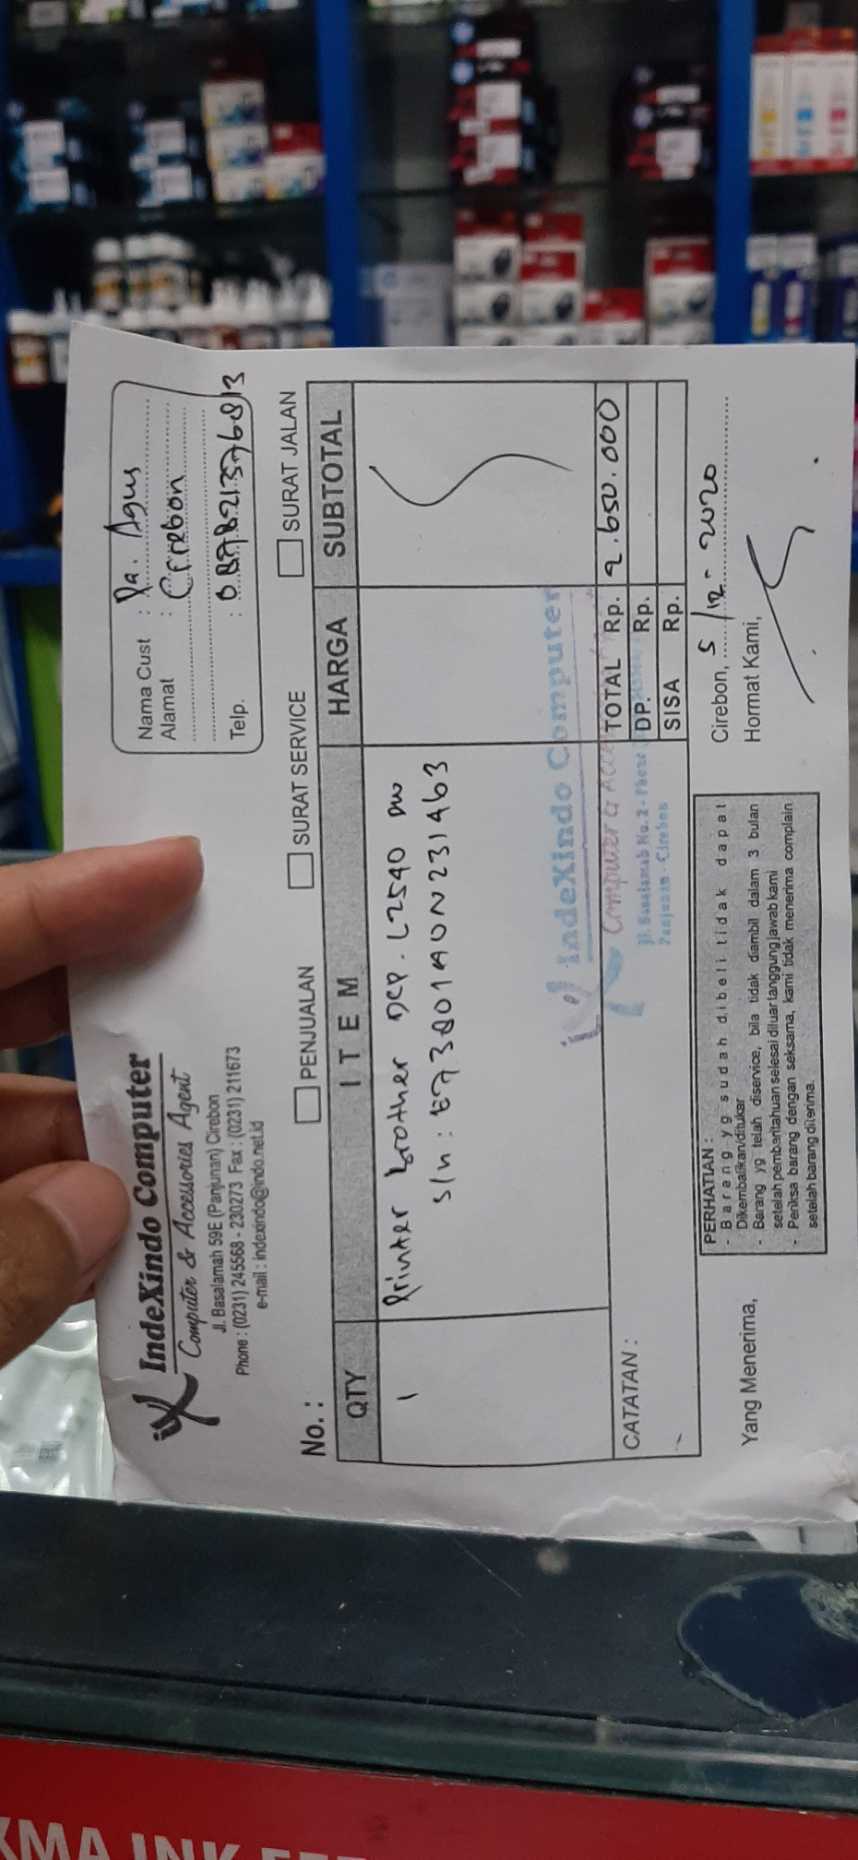 IndeXindo Computer
Computer & Accessories Agent
Jl. Basalamah 59E (Panjunan) Cirebon
Phone : (0231) 245568 - 230273 Fax : (0231) 211673
e-mail : indexindo@indo.net.id
Nama Cust : Pa. Agus
Alamat : Cirebon
Telp. : 087821376813
No. :
PENJUALAN SURAT SERVICE SURAT JALAN
QTY ITEM HARGA SUBTOTAL
1 Printer brother DCP. L2540 DW
s/n : E73801A0N231463
IndeXindo Computer
Computer & Acce
Jl. Basalamah No. 2 - Phone
Panjunan - Cirebon
CATATAN :
TOTAL Rp. 2.650.000
DP. Rp.
SISA Rp.
Yang Menerima,
PERHATIAN :
- Barang yg sudah dibeli tidak dapat
Dikembalikan/ditukar
- Barang yg telah diservice, bila tidak diambil dalam 3 bulan
setelah pemberitahuan selesai diluar tanggung jawab kami
- Periksa barang dengan seksama, kami tidak menerima complain
setelah barang diterima.
Cirebon, 5/12-2020
Hormat Kami,